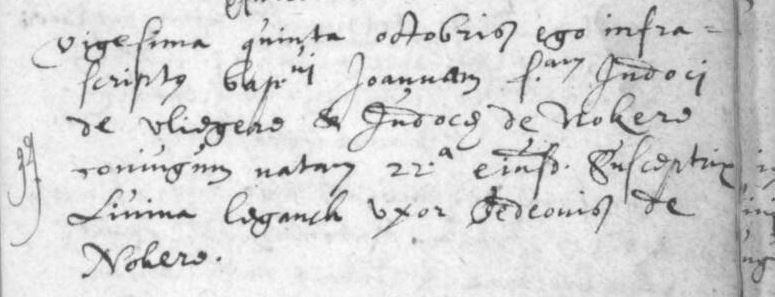 vigesima quinta octobris ego infra=
scriptus bap.vi Joannam f.am Judoci
de vliegere & Judocæ de Nokere
coniugum natam 22.a eiusd. Susceptrix
Liuina leganck vxor Gedeonis de
Nokere.